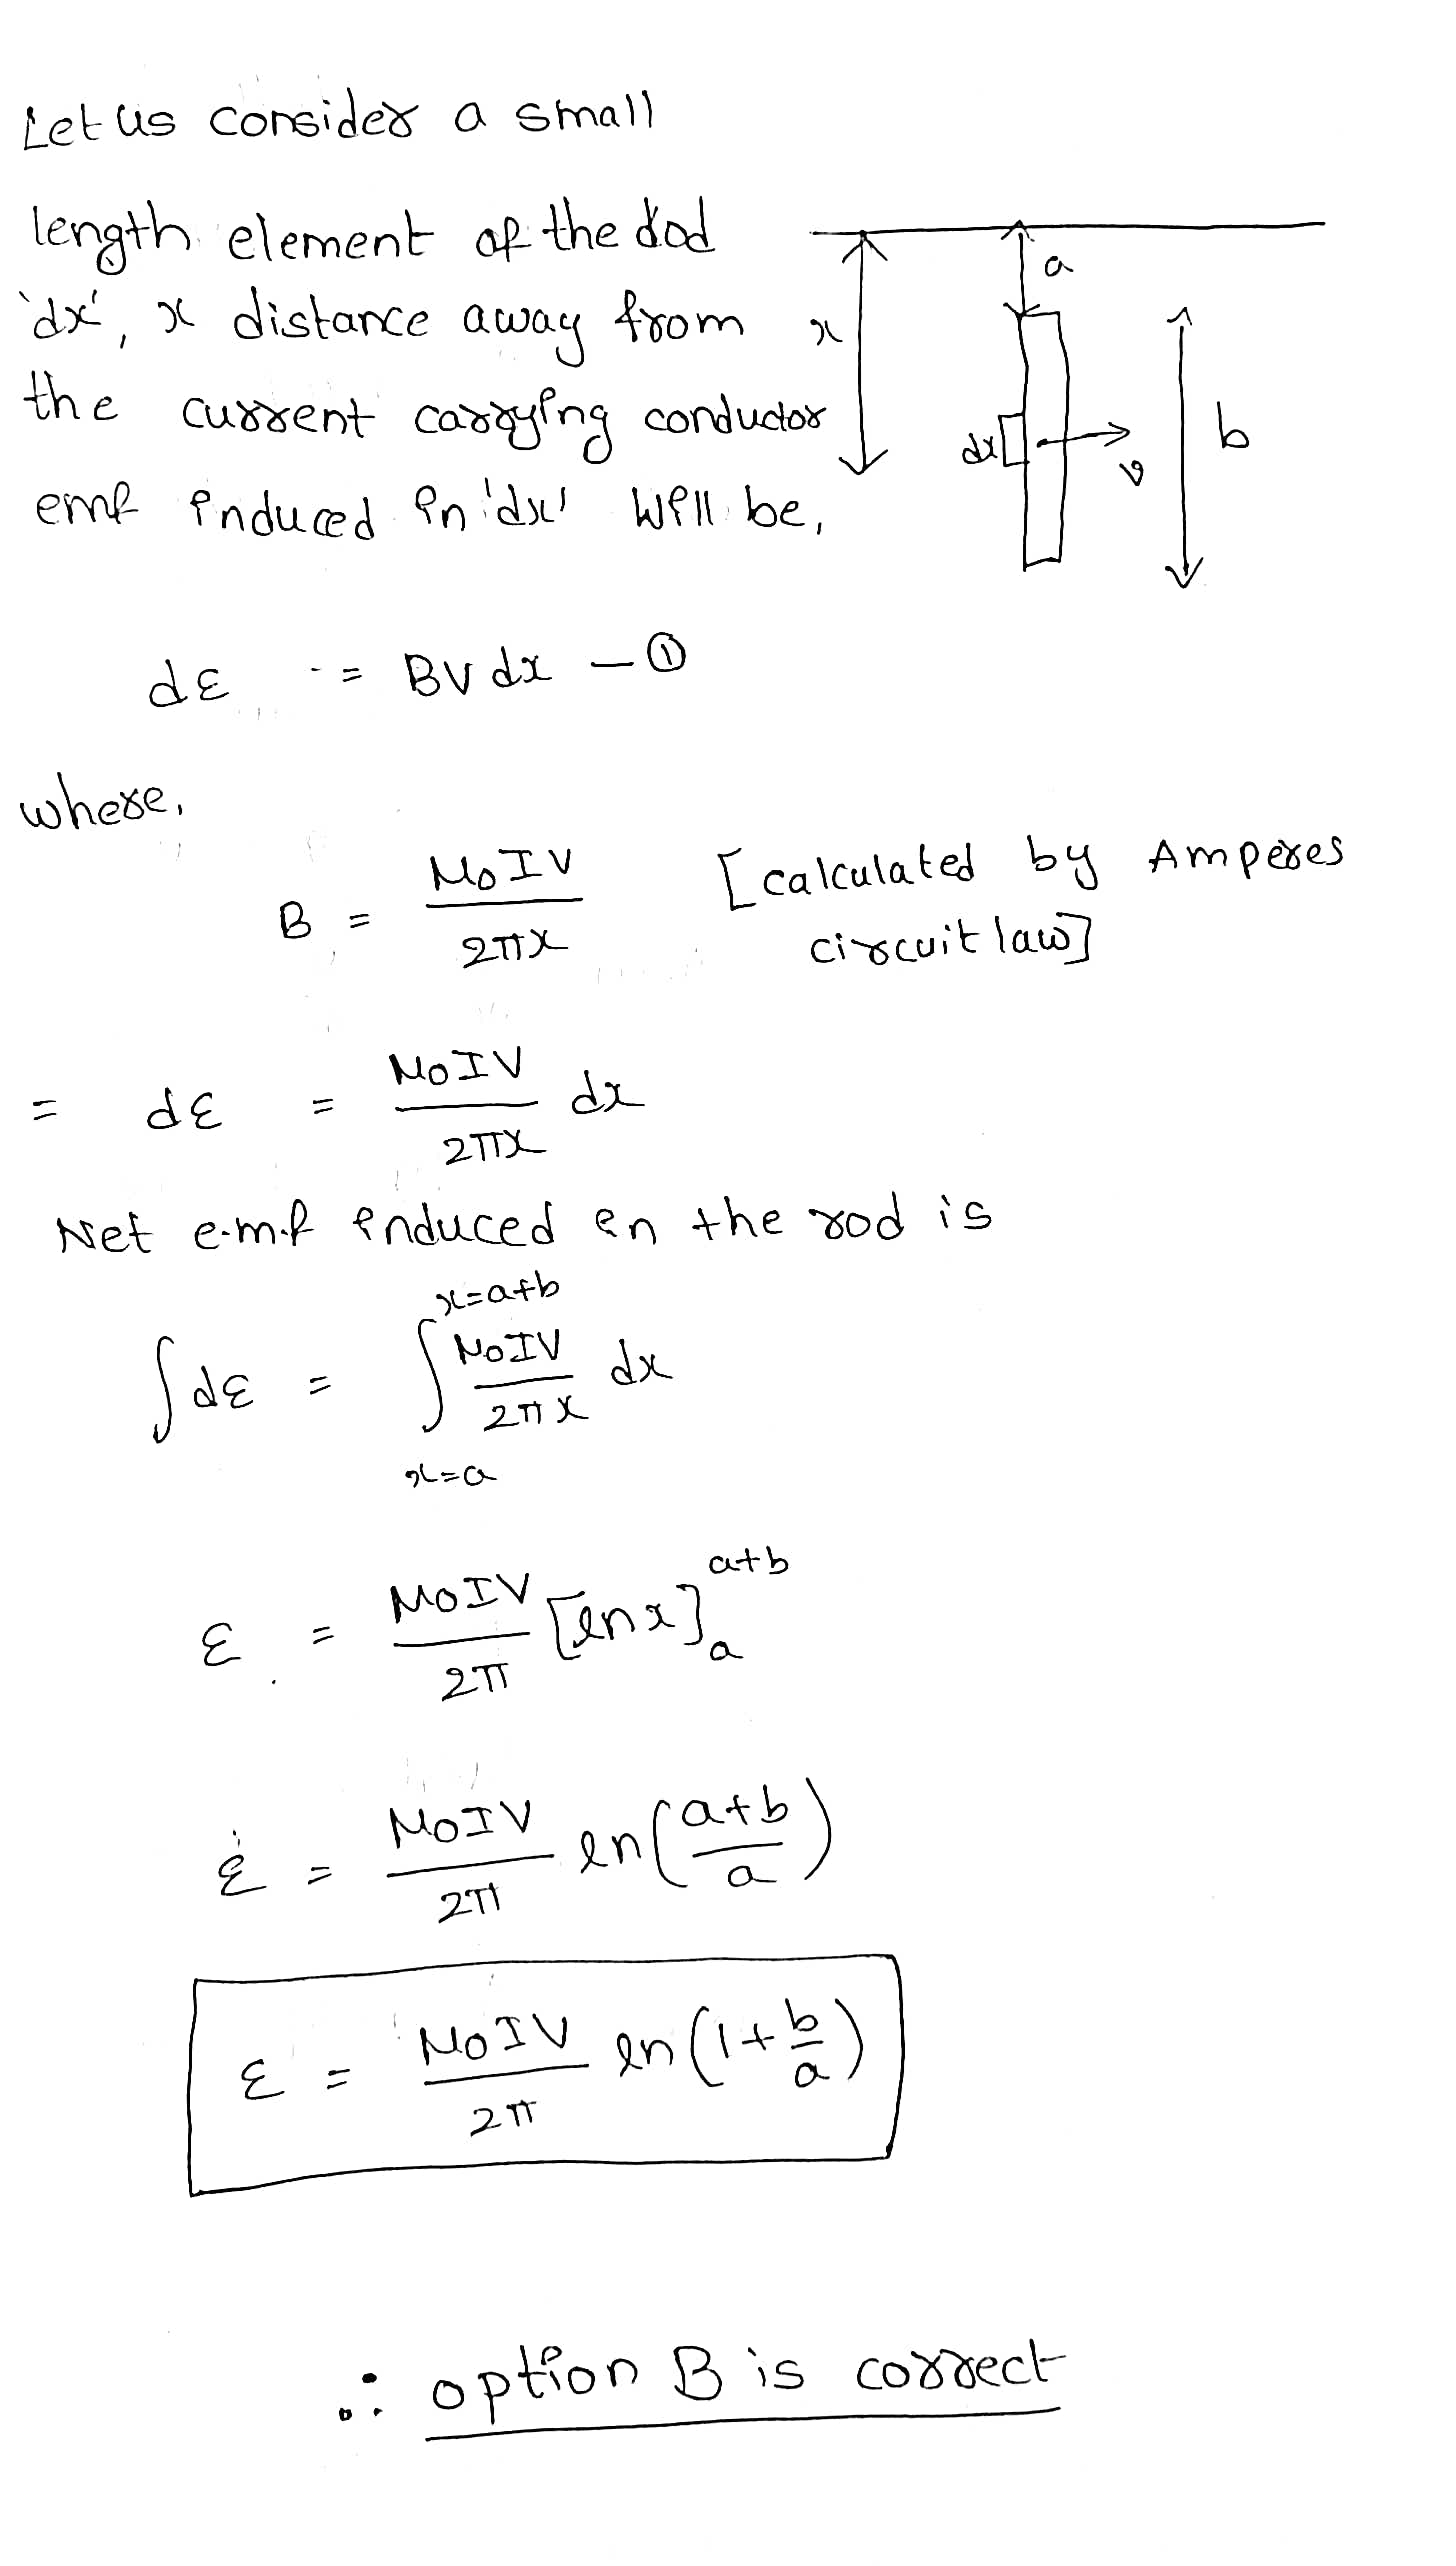 Let us consider a small
length element of the rod
'dx', x distance away from
the current carrying conductor
emf induced in 'dx' will be,
x
a
dx
v
b
dε = BV dx — ①
where,
B = μ₀IV / 2πx [calculated by Amperes
circuit law]
= dε = μ₀IV / 2πx dx
Net e.m.f induced in the rod is
x=a+b
∫dε = ∫ μ₀IV / 2πx dx
x=a
ε = μ₀IV / 2π [ln x]ₐᵃ⁺ᵇ
ε = μ₀IV / 2π ln(a+b / a)
ε = μ₀IV / 2π ln(1+b/a)
∴ option B is correct